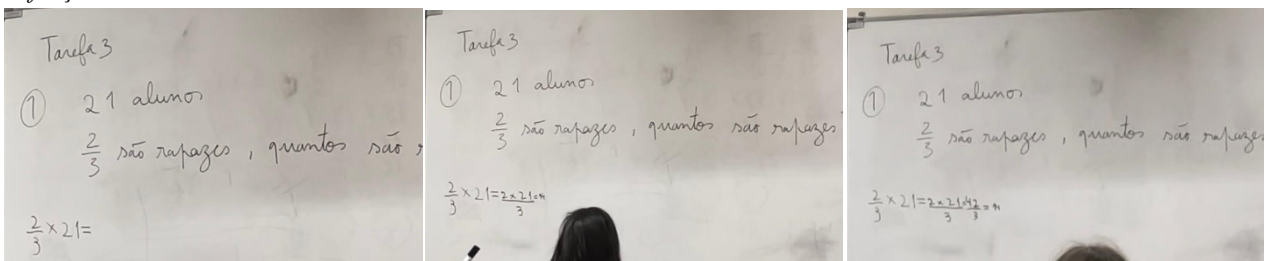 Tarefa 3
① 21 alunos
2/3 são rapazes, quantos são
2/3 × 21 =
Tarefa 3
① 21 alunos
2/3 são rapazes, quantos são rapazes
2/3 × 21 = 2 × 21/3 =
Tarefa 3
① 21 alunos
2/3 são rapazes, quantos são rapazes
2/3 × 21 = 2 × 21/3 = 42/3 =